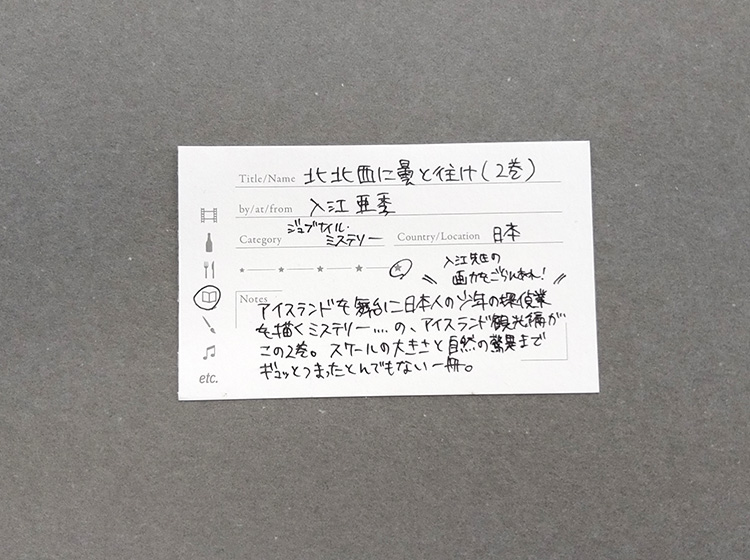 Title/Name 北北西に曇と往け(2巻)
by/at/from 入江亜季
Category ジュブナイル・
ミステリー
Country/Location 日本
入江先生の
画力をごらんあれ!
Notes
アイスランドを舞台に日本人の少年の探偵業
を描くミステリー....の、アイスランド観光編が
この2巻。スケールの大きさと自然の驚異まで
ギュッとつまったとんでもない一冊。
etc.